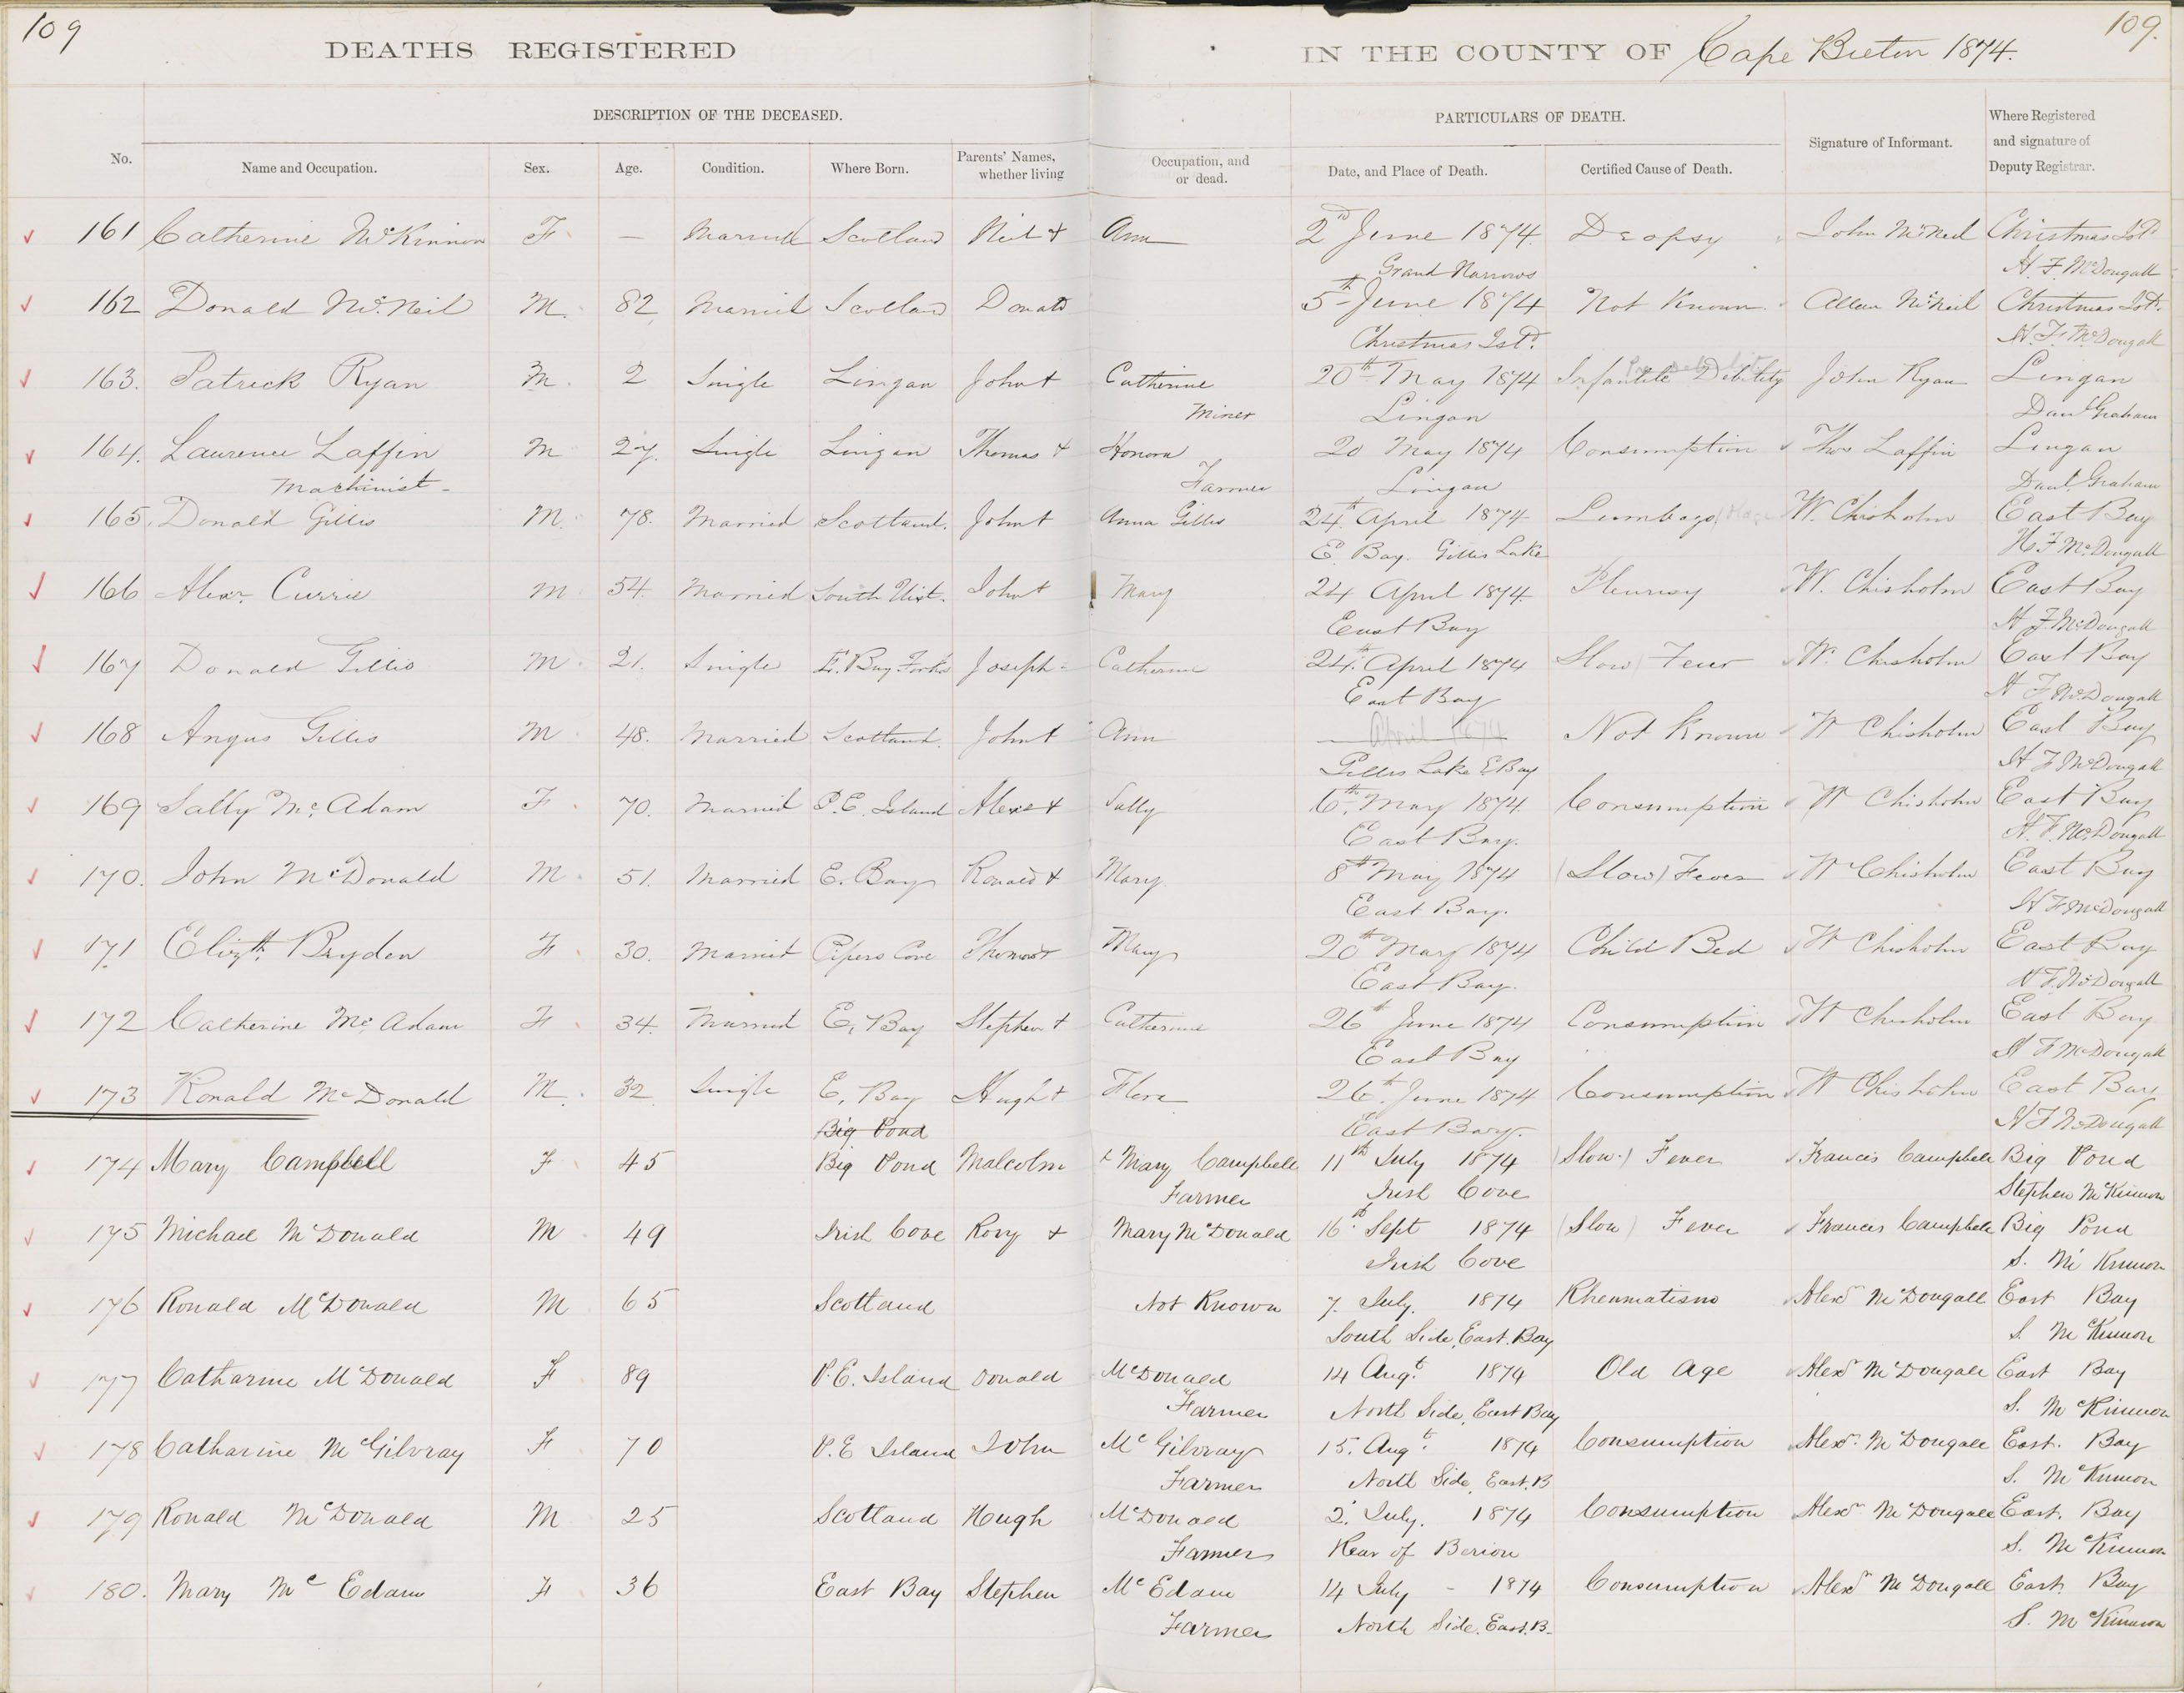 109 109.
DEATHS REGISTERED IN THE COUNTY OF Cape Breton 1874.
DESCRIPTION OF THE DECEASED. PARTICULARS OF DEATH. Where Registered
and signature of
Deputy Registrar.
No. Name and Occupation. Sex. Age. Condition. Where Born. Parents' Names, whether living Occupation, and or dead. Date, and Place of Death. Certified Cause of Death. Signature of Informant.
161 Catherine McKinnon F. — Married Scotland Neil + Ann 2nd June 1874 Dropsy John McNeil Christmas Isd
Grand Narrows H. F. McDougall
162 Donald McNeil M. 82 Married Scotland Donald 5th June 1874 Not Known Allan McNeil Christmas Isd.
Christmas Isd. H. F. McDougall
163. Patrick Ryan M. 2 Single Lingan John + Catherine 20th May 1874 Infantile Debility John Ryan Lingan
Miner Lingan Danl Graham
164. Laurence Laffin M 27. Single Lingan Thomas + Honora 20 May 1874 Consumption Thos Laffin Lingan
Machinist - Farmer Lingan Danl. Graham
165. Donald Gillis M. 78. Married Scotland. John + Anna Gillis 24th April 1874 Lumbago W. Chisholm East Bay
E. Bay. Gillis Lake H. F. McDougall
166 Alexr. Currie M 54. Married South Uist. John + Mary 24 April 1874. Pleurisy W. Chisholm East Bay
East Bay H. F. McDougall
167 Donald Gillis M. 21. Single E. Bay Forks Joseph Catherine 24th. April 1874 Slow Fever W. Chisholm East Bay
East Bay H F McDougall
168 Angus Gillis M 48. Married Scotland. John + Ann April 1874 Not Known W Chisholm East Bay
Gillis Lake E Bay H F McDougall
169 Sally Mc. Adam F. 70. Married P. E. Island Alexr + Sally 6th. May 1874. Consumption W Chisholm East Bay
East Bay. H. F. McDougall
170. John McDonald M. 51. Married E. Bay Ronald + Mary 8th May 1874 (Slow) Fever W Chisholm East Bay
East Bay. H F McDougall
171 Elizth. Bryden F. 30. Married Pipers Cove Thomas + Mary 20th May 1874 Child Bed W Chisholm East Bay
East Bay. H F McDougall
172 Catherine Mc. Adam F. 34. Married E. Bay Stephen + Catherine 26th June 1874 Consumption W Chisholm East Bay
East Bay H F McDougall
173 Ronald McDonald M. 32 Single E. Bay Hugh + Flora 26th. June 1874 Consumption W Chisholm East Bay
Big Pond East Bay. H F McDougall
174 Mary Campbell F 45 Big Pond Malcolm + Mary Campbell 11th July 1874 (Slow.) Fever Francis Campbell Big Pond
Farmer Irish Cove Stephen McKinnon
175 Michael McDonald M 49 Irish Cove Rory + Mary McDonald 16th. Sept 1874 (Slow) Fever Francis Campbell Big Pond
Irish Cove S. McKinnon
176 Ronald McDonald M 65 Scotland Not Known 7. July. 1874 Rheumatism Alexr McDougall East Bay
South Side, East. Bay S. McKinnon
177 Catharine McDonald F 89 P. E. Island Donald McDonald 14 Augt. 1874 Old Age Alexr McDougall East Bay
Farmer North Side, East Bay S. McKinnon
178 Catharine McGilvray F 70 P. E Island John McGilvray 15. Augt. 1874 Consumption Alexr. McDougall East. Bay
Farmer North Side, East. B S. McKinnon
179 Ronald McDonald M 25 Scotland Hugh McDonald 2. July. 1874 Consumption Alexr McDougall East. Bay
Farmer Rear of S. McKinnon
180. Mary Mc Edam F 36 East Bay Stephen Mc Edam 14 July - 1874 Consumption Alexr McDougall East. Bay
Farmer North Side. East. B. S. McKinnon